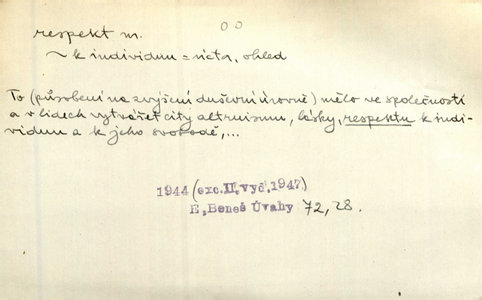 respekt m.
~ k individuu = úcta, ohled
To (působení na zvýšení duševní úrovně) mělo ve společnosti
a v lidech vytvářet city altruismu, lásky, respektu k indi-
viduu a k jeho svobodě,...
1944 (exc.II.vyd.1947)
E. Beneš Úvahy 72, 28.